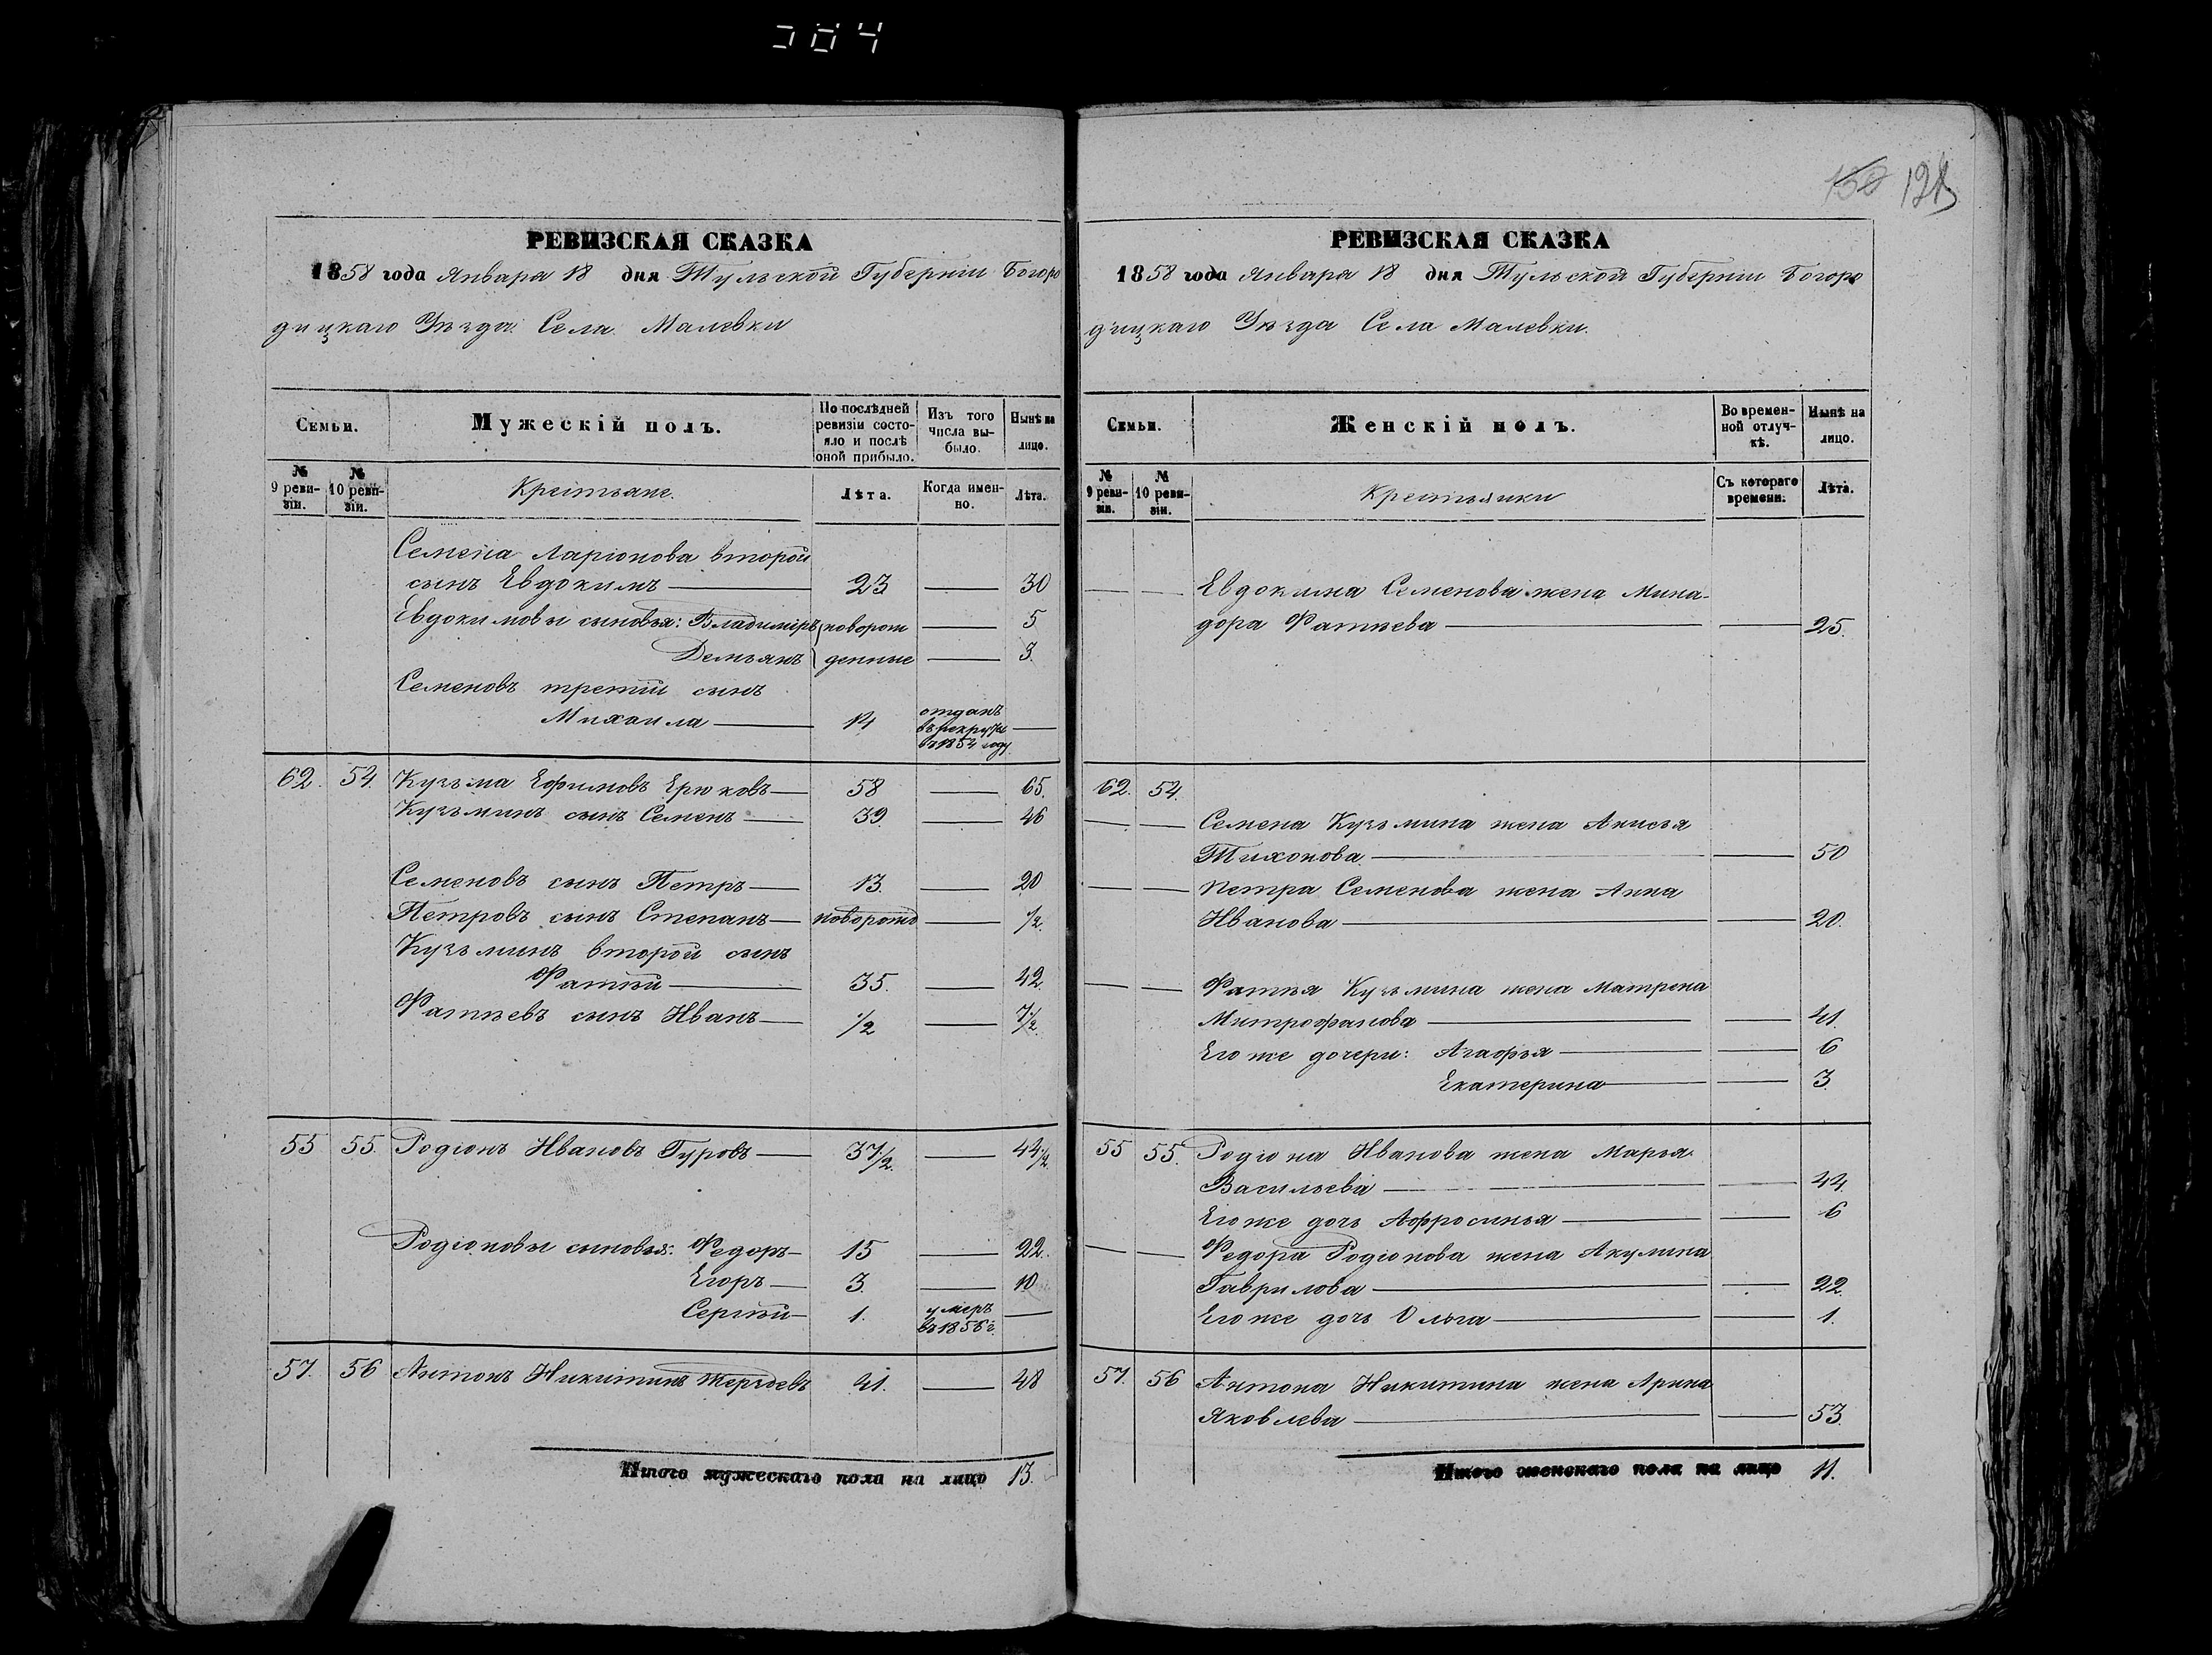 304
150 128
РЕВИЗСКАЯ СКАЗКА
1858 года Января 18 дня Тульской Губерніи Богоро
дицкаго Уѣзда Села Малевки
Семьи.
Мужескій полъ.
По послѣдней ревизіи состояло и послѣ оной прибыло.
Изъ того числа выбыло.
Нынѣ на лицо.
№ 9 ревизіи.
№ 10 ревизіи.
Крестьяне.
Лѣта.
Когда именно.
Лѣта.
Семена Ларіонова второй
сынъ Евдокимъ 23 — 30
Евдокимовы сыновья: Владиміръ новорож — 5
Демьянъ денные — 3.
Семеновъ третій сынъ
Михаила 14 отданъ
въ рекруты —
въ 1854 году.
62. 54. Кузьма Ефимовъ Ерюковъ 58 — 65.
Кузьминъ сынъ Семенъ 39. — 46
Семеновъ сынъ Петръ 13. — 20
Петровъ сынъ Степанъ новорожд — 1/2.
Кузьминъ второй сынъ
Фатѣй 35. — 42.
Фатѣевъ сынъ Иванъ 1/2 — 7 1/2.
55 55. Родіонъ Ивановъ Гуровъ 37 1/2. — 44 1/2.
Родіоновы сыновья: Федоръ 15 — 22.
Егоръ 3. — 10
Сергѣй 1. умеръ —
въ 1856 г.
57. 56 Антонъ Никитинъ 41. — 48
Итого мужескаго пола на лицо 13.
РЕВИЗСКАЯ СКАЗКА
1858 года Января 18 дня Тульской Губерніи Богоро
дицкаго Уѣзда Села Малевки.
Семьи.
Женскій полъ.
Во временной отлучкѣ.
Нынѣ на лицо.
№ 9 ревизіи.
№ 10 ревизіи.
Крестьянки
Съ котораго времени.
Лѣта.
— — Евдокима Семенова жена Мина-
дора Фатѣева — 25.
62. 54.
— — Семена Кузьмина жена Анисья
Тихонова — 50
— — Петра Семенова жена Анна
Иванова — 20.
— — Фатѣя Кузьмина жена Матрена
Митрофанова — 41.
Его же дочери: Агафья — 6
Екатерина — 3.
55 55. Родіона Иванова жена Марья
Васильева — 44.
Его же дочь Афросинья — 6
— — Федора Родіонова жена Акулина
Гаврилова — 22.
Его же дочь Ольга — 1.
57. 56 Антона Никитина жена Арина
Яковлева — 53.
Итого женскаго пола на лицо 11.